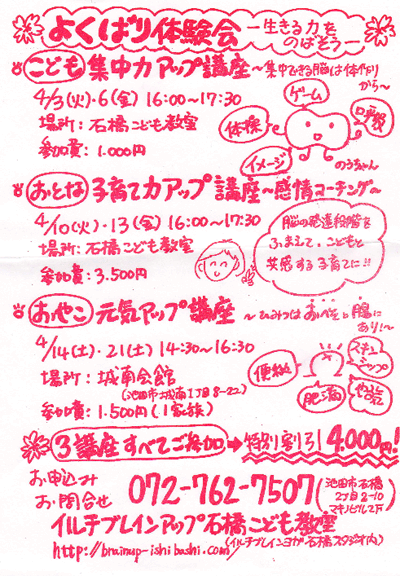 よくばり体験会 ー生きる力をのばそうー
こども 集中力アップ講座 ～集中できる脳は体作りから～
4/3(火)・6(金) 16:00～17:30
場所：石橋こども教室
参加費：1.000円
ゲーム
体操
イメージ
のうちゃん
おとな 子育て力アップ講座～感情コーチング～
4/10(火)・13(金) 16:00～17:30
場所：石橋こども教室
参加費：3.500円
脳の発達段階を
ふまえて、こどもと
共感する子育てに!!
おやこ 元気アップ講座 ～ひみつはおへそと腸にあり!～
4/14(土)・21(土) 14:30～16:30
場所：城南会館
(池田市城南1丁目8-22)
参加費：1.500円(1家族)
便秘
肥満
3講座すべてご参加→特別割引 4.000円!
お申込み
お問合せ
072-762-7507
(池田市石橋
2丁目2-10
マキノビル2F)
イルチブレインアップ石橋こども教室
(イルチブレインヨガ石橋スタジオ内)
http://brainup-ishibashi.com/